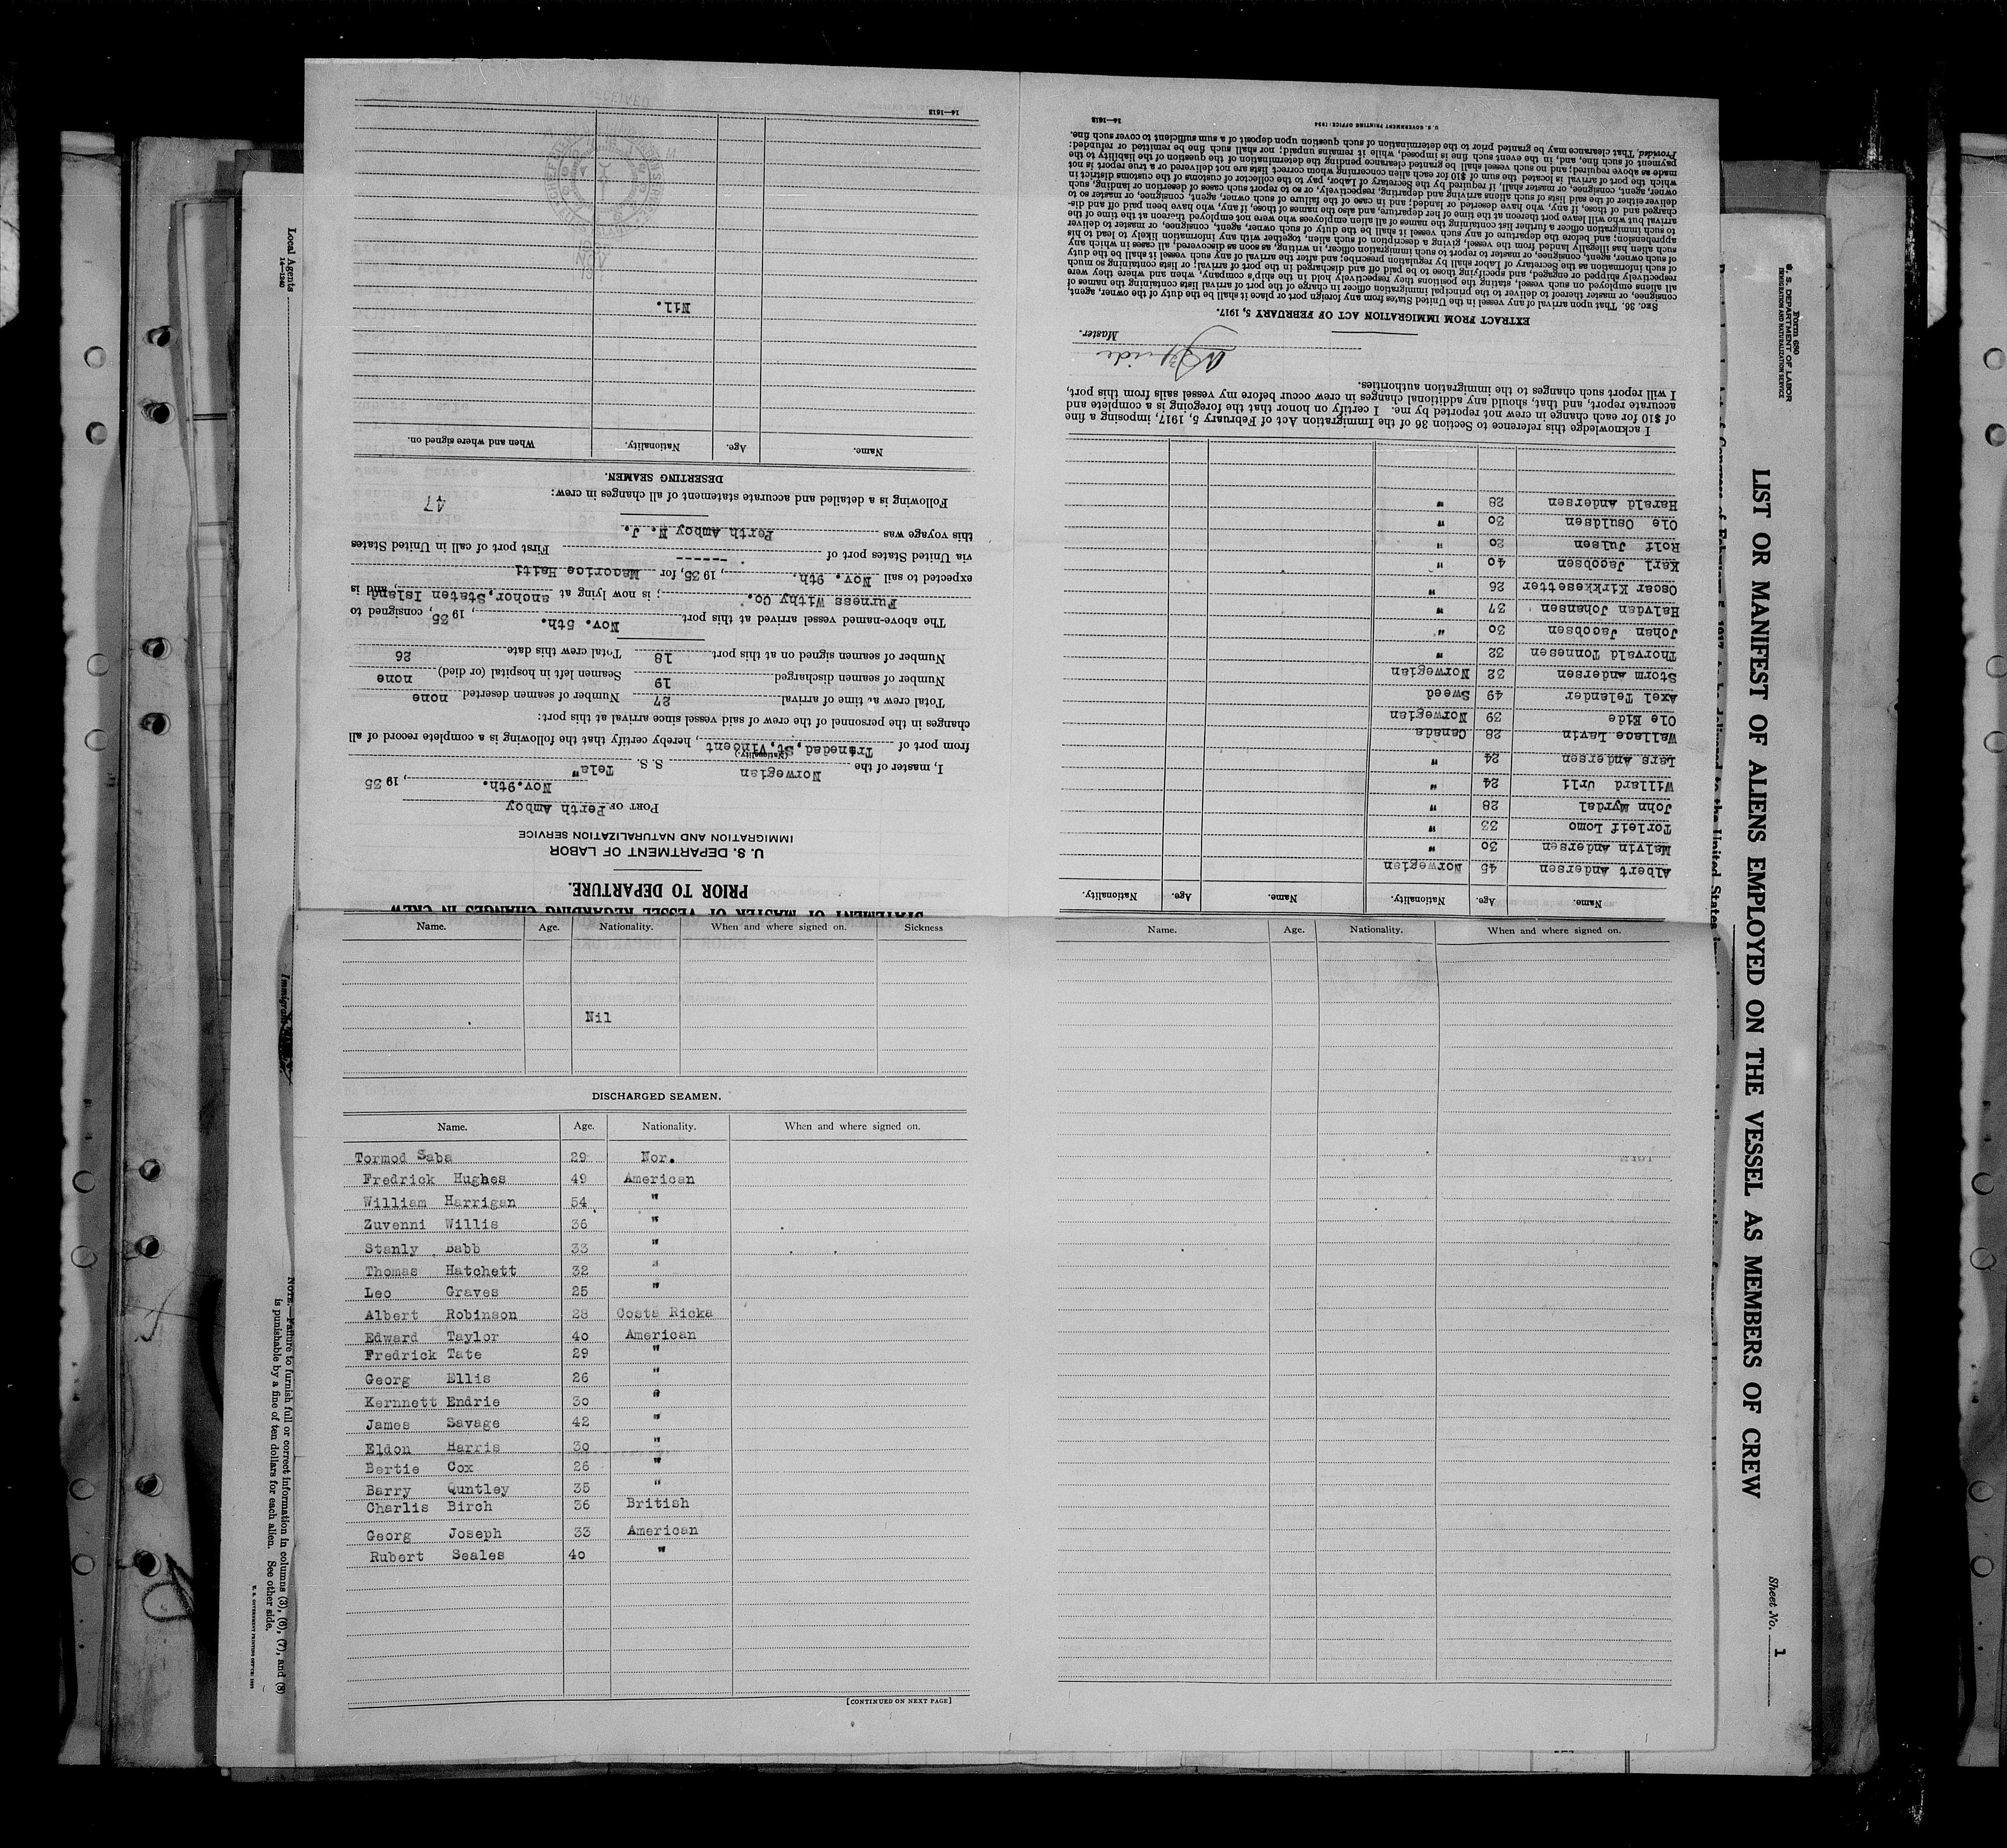 STATEMENT OF MASTER OF VESSEL REGARDING CHANGES IN CREW
PRIOR TO DEPARTURE.
U. S. DEPARTMENT OF LABOR
IMMIGRATION AND NATURALIZATION SERVICE
PORT OF Perth Amboy
Nov.9th. , 19 35
I, master of the Norwegian S. S. Tela"
(Nationality)
from port of Trinedad,St.Vincent , hereby certify that the following is a complete record of all
changes in the personnel of the crew of said vessel since arrival at this port:
Total crew at time of arrival 27 Number of seamen deserted none
Number of seamen discharged 19 Seamen left in hospital (or died) none
Number of seamen signed on at this port 18 Total crew this date 26
The above-named vessel arrived at this port Nov. 5th. , 19 35, consigned to
Furness Withy Co. ; is now lying at anchor,Staten Island, and is
expected to sail Nov. 9th. , 19 35, for Macorice Haiti
via United States port of ------ First port of call in United States
this voyage was Perth Amboy N. J.
47
Following is a detailed and accurate statement of all changes in crew:
DESERTING SEAMEN.
Name. Age. Nationality. When and where signed on.
Nil.
14—1618
Name. Age. Nationality. When and where signed on. Sickness
Nil
DISCHARGED SEAMEN.
Name. Age. Nationality. When and where signed on.
Tormod Saba 29 Nor.
Fredrick Hughes 49 American
William Harrigan 54 "
Zuvenni Willis 36 "
Stanly Babb 33 "
Thomas Hatchett 32 "
Leo Graves 25 "
Albert Robinson 28 Costa Ricka
Edward Taylor 40 American
Fredrick Tate 29 "
Georg Ellis 26 "
Kernnett Endrie 30 "
James Savage 42 "
Eldon Harris 30 "
Bertie Cox 26 "
Barry Quntley 35 "
Charlis Birch 36 British
Georg Joseph 33 American
Rubert Seales 40 "
[CONTINUED ON NEXT PAGE]
Name. Age. Nationality. When and where signed on.
Name. Age. Nationality. Name. Age. Nationality.
Albert Andersen 45 Norwegian
Malvin Andersen 30 "
Torleif Lomo 33 "
John Myrdal 28 "
Willard Urli 24 "
Lars Andersen 24 "
Wallace Lavin 28 Canada
Ole Eide 39 Norwegian
Axel Telander 49 Sweed
Storm Andersen 32 Norwegian
Thorvald Tonnesen 32 "
Johan Jacobsen 30 "
Halvdan Johansen 37 "
Oscar Kirkkesetter 26 "
Karl Jacobsen 40 "
Rolf Julsen 20 "
Ole Osuldsen 30 "
Harald Andersen 28 "
I acknowledge this reference to Section 36 of the Immigration Act of February 5, 1917, imposing a fine
of $10 for each change in crew not reported by me. I certify on honor that the foregoing is a complete and
accurate report, and that, should any additional changes in crew occur before my vessel sails from this port,
I will report such changes to the immigration authorities.
Master.
EXTRACT FROM IMMIGRATION ACT OF FEBRUARY 5, 1917.
SEC. 36. That upon arrival of any vessel in the United States from any foreign port or place it shall be the duty of the owner, agent,
consignee, or master thereof to deliver to the principal immigration officer in charge of the port of arrival lists containing the names of
all aliens employed on such vessel, stating the positions they respectively hold in the ship's company, when and where they were
respectively shipped or engaged, and specifying those to be paid off and discharged in the port of arrival; or lists containing so much
of such information as the Secretary of Labor shall by regulation prescribe; and after the arrival of any such vessel it shall be the duty
of such owner, agent, consignee, or master to report to such immigration officer, in writing, as soon as discovered, all cases in which any
such alien has illegally landed from the vessel, giving a description of such alien, together with any information likely to lead to his
apprehension; and before the departure of any such vessel it shall be the duty of such owner, agent, consignee, or master to deliver
to such immigration officer a further list containing the names of all alien employees who were not employed thereon at the time of the
arrival but who will leave port thereon at the time of her departure, and also the names of those, if any, who have been paid off and dis-
charged and of those, if any, who have deserted or landed; and in case of the failure of such owner, agent, consignee, or master so to
deliver either of the said lists of such aliens arriving and departing, respectively, or so to report such cases of desertion or landing, such
owner, agent, consignee, or master, shall, if required by the Secretary of Labor, pay to the collector of customs of the customs district in
which the port of arrival is located the sum of $10 for each alien concerning whom correct lists are not delivered or a true report is not
made as above required; and no such vessel shall be granted clearance pending the determination of the question of the liability to the
payment of such fine, and, in the event such fine is imposed, while it remains unpaid; nor shall such fine be remitted or refunded:
Provided, That clearance may be granted prior to the determination of such question upon deposit of a sum sufficient to cover such fine.
U. S. GOVERNMENT PRINTING OFFICE: 1934
14—1618
Form 680
U. S. DEPARTMENT OF LABOR
IMMIGRATION AND NATURALIZATION SERVICE
LIST OR MANIFEST OF ALIENS EMPLOYED ON THE VESSEL AS MEMBERS OF CREW
Sheet No. 1
Local Agents
14—1240
NOTE.—Failure to furnish full or correct information in columns (3), (6), (7), and (8)
is punishable by a fine of ten dollars for each alien. See other side.